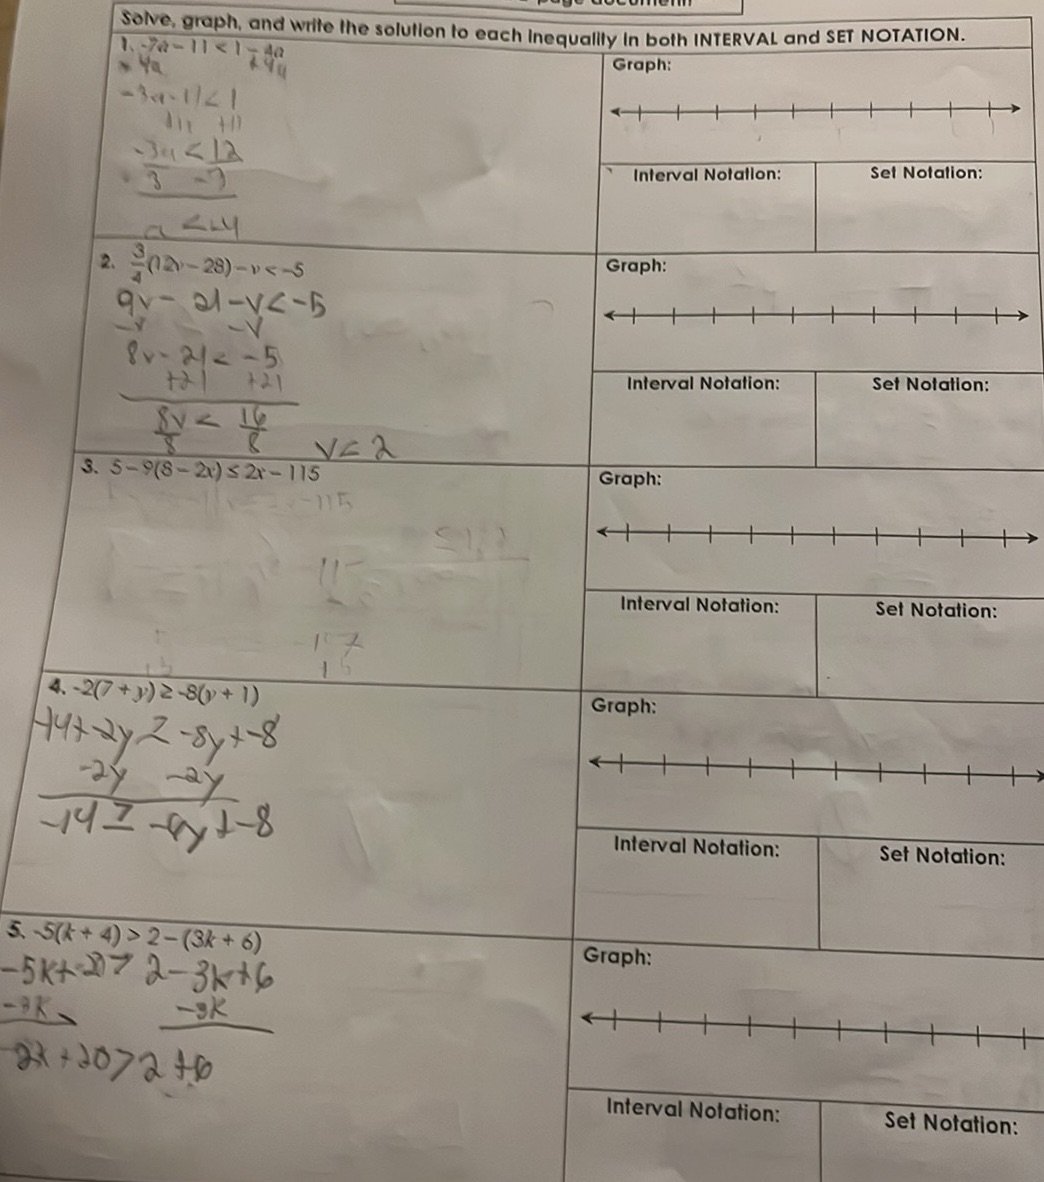 Solve, graph, and write the solution to each inequality in both INTERVAL and SET NOTATION.
1. -7a - 11 < 1 - 4a
+4a +4a
-3a - 11 < 1
+11 +11
-3a < 12
3 -3
a < -4
Graph:
Interval Notation:
Set Notation:
2. 3/4(12v - 28) - v < -5
9v - 21 - v < -5
-v -v
8v - 21 < -5
+21 +21
8v < 16
8 8
v < 2
Graph:
Interval Notation:
Set Notation:
3. 5 - 9(8 - 2x) ≤ 2x - 115
-115
Graph:
Interval Notation:
Set Notation:
4. -2(7 + y) ≥ -8(y + 1)
-14 + -2y ≥ -8y + -8
-2y -2y
-14 ≥ -6y + -8
Graph:
Interval Notation:
Set Notation:
5. -5(k + 4) > 2 - (3k + 6)
-5k + 20 > 2 - 3k + 6
-3k -3k
2k + 20 > 2 + 6
Graph:
Interval Notation:
Set Notation: